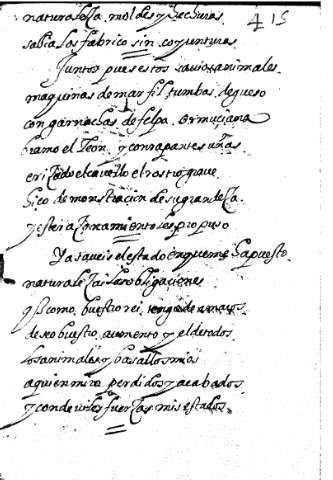 415
naturaleza moldes y hechuras
sabia los fabrico sin coyunturas
Juntos pues estos raviox animales
maquinas de marfil tumbas de gueso
con garnachas de felpa
bramo el leon, y con rapantes uñas
erizado el cavello el rostro grave
hiço demonstracion de su grandeza
y este raçonamiento les propuso
Ya saveis el estado en que me ha puesto
naturaleza i las obligaciones
q̃ como buestro rei tengo de amaros
deseo buestro aumento y el de todos
los animales y basallos mios
a quien miro perdidos y acabados
y con deviles fuerzas mis estados